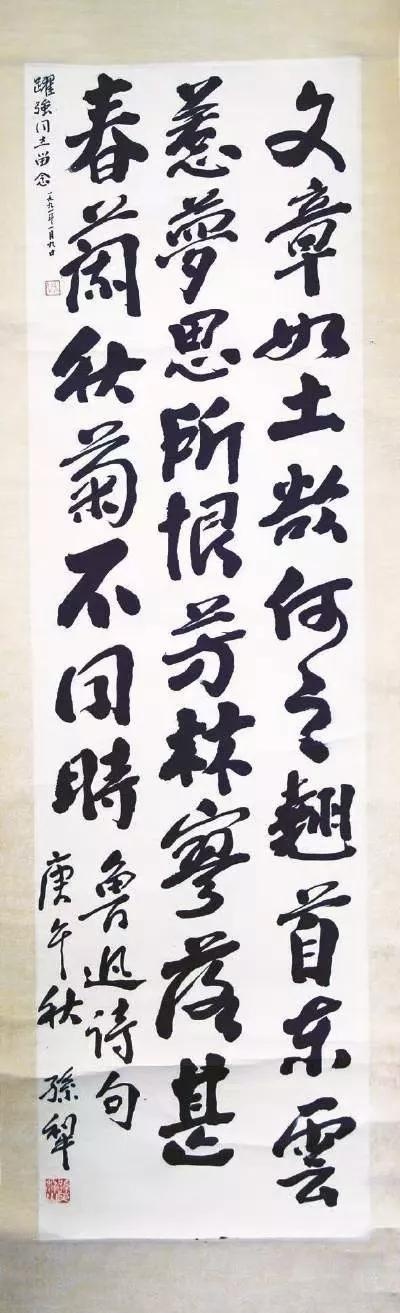 文章如土欲何之翹首東雲
惹夢思所恨芳林寥落甚
春蘭秋菊不同時
魯迅詩句
庚午秋 孫犁
躍強同志留念
一九九一年一月九日